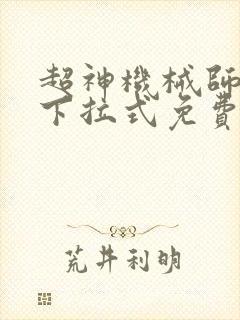 超神機械師
下拉式免費
荒井利明